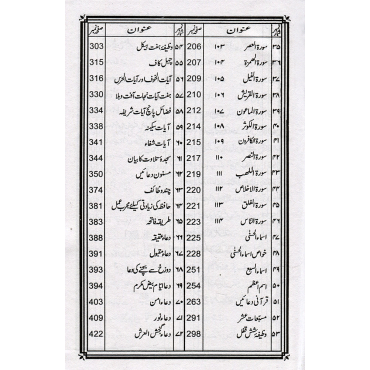 عنوان صفحہ نمبر
۳۵ سورۃ العصر ۱۰۳ 206
۳۶ سورۃ الھمزۃ ۱۰۴ 207
۳۷ سورۃ الفیل ۱۰۵ 209
۳۸ سورۃ القریش ۱۰۶ 210
۳۹ سورۃ الماعون ۱۰۷ 212
۴۰ سورۃ الکوثر ۱۰۸ 214
۴۱ سورۃ الکافرون ۱۰۹ 215
۴۲ سورۃ النصر ۱۱۰ 217
۴۳ سورۃ اللھب ۱۱۱ 219
۴۴ سورۃ الاخلاص ۱۱۲ 220
۴۵ سورۃ الفلق ۱۱۳ 221
۴۶ سورۃ الناس ۱۱۴ 223
۴۷ اسماء الحسنیٰ 225
۴۸ خواص اسماء الحسنیٰ 228
۴۹ اسماء 251
۵۰ اسم اعظم 254
۵۱ قرآنی دعائیں 261
۵۲ مسبعات عشر 291
۵۳ وظیفہ شش قفل 298
عنوان صفحہ نمبر
۵۴ وظیفہ ہفت ہیکل 303
۵۵ چہل کاف 315
۵۶ آیات الخوف اور آیات الحرس 316
۵۷ ہفت آیات نجات آفت و بلا 330
۵۸ فضائل پانچ آیات شریفہ 334
۵۹ آیات سکینہ 338
۶۰ آیات شفاء 341
۶۱ سجدہ تلاوت کا بیان 344
۶۲ مسنون دعائیں 350
۶۳ چند وظائف 374
۶۴ حافظہ کی زیادتی کیلئے مجرب عمل 381
۶۵ طریقہ فاتحہ 383
۶۶ دعاء عقیقہ 388
۶۷ دعاء مقبول 391
۶۸ دوزخ سے بچنے کی دعا 393
۶۹ دعائے ایام بیض مکرم 394
۷۰ دعاء امن 403
۷۱ دعاء نور 409
۷۲ دعاء گنج العرش 422